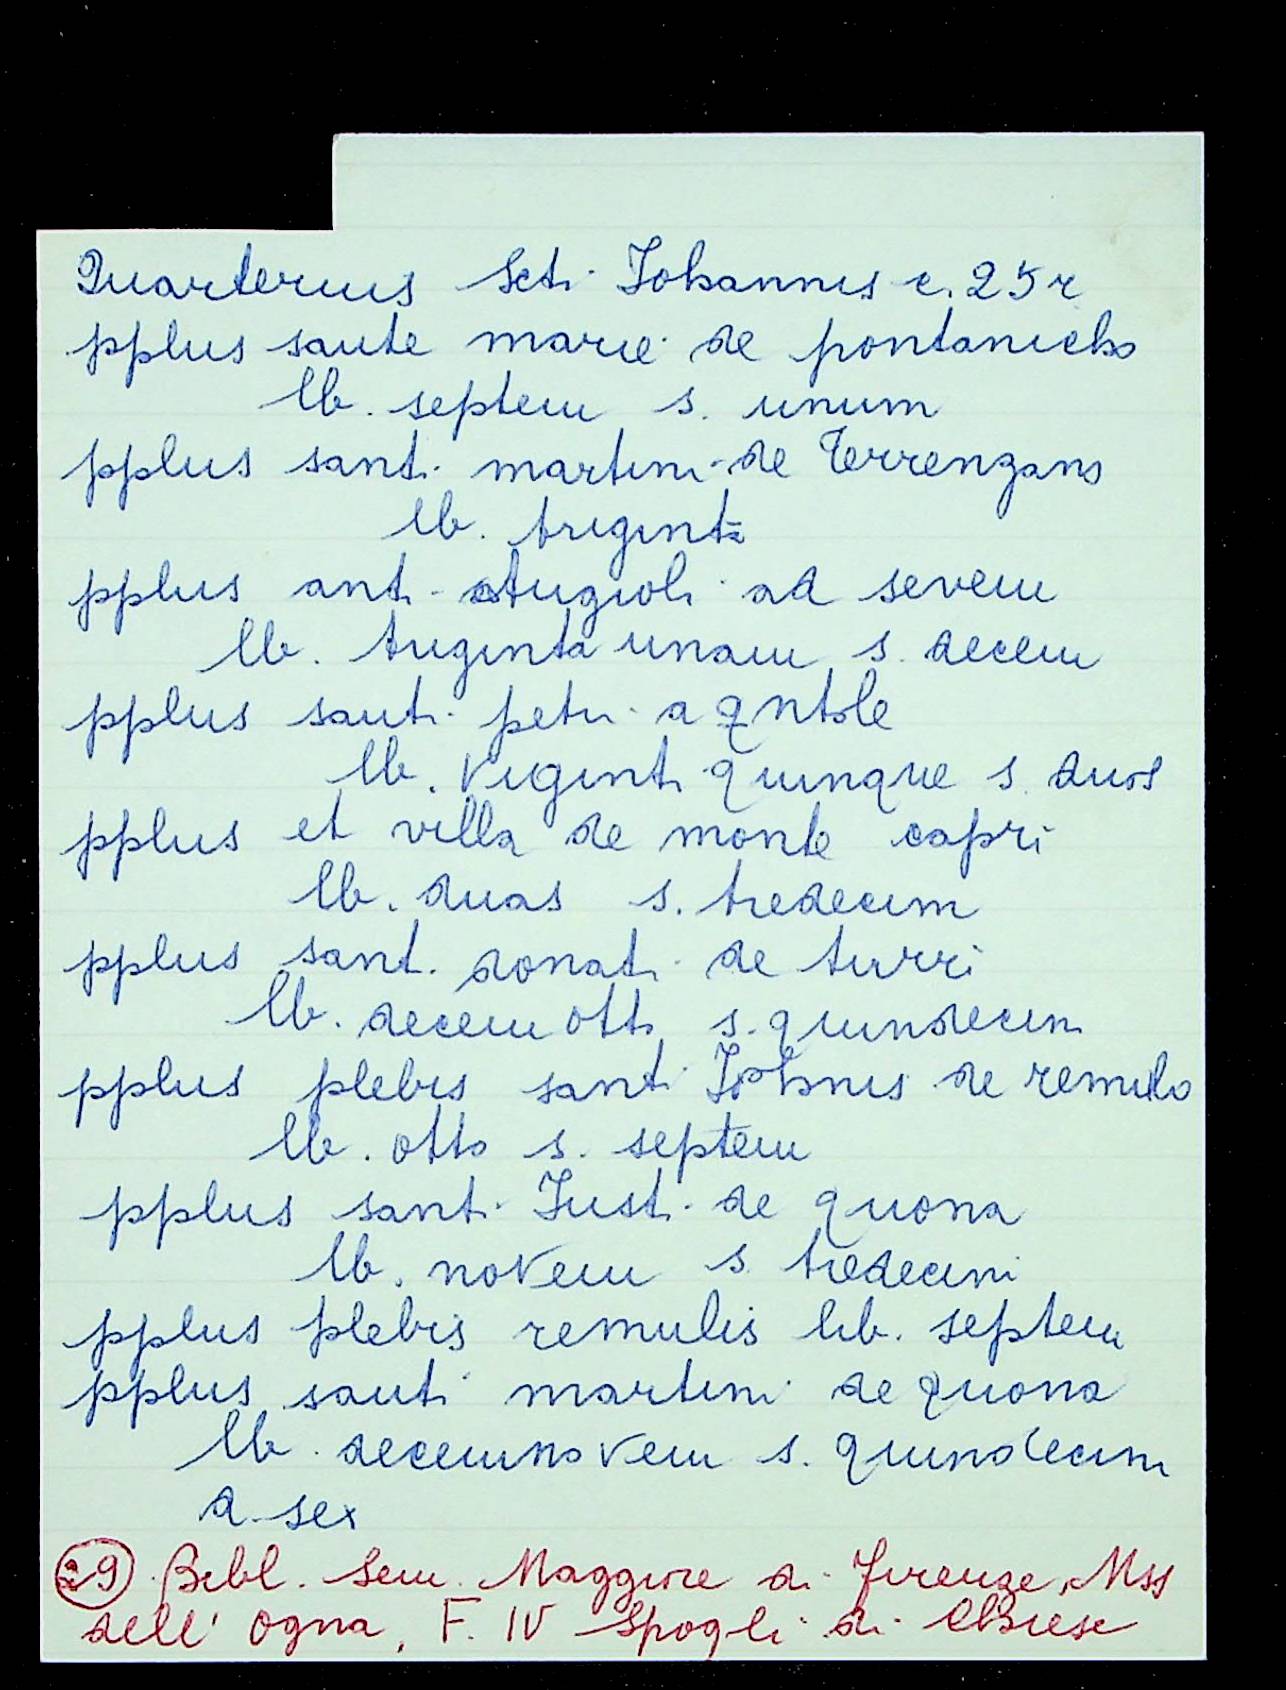 Quarterius Scti Johannis c. 25 r
pplus sante marie de pontanicho
lb. septem s. unum
pplus santi martini de Terrenzano
lb. triginta
pplus anti stugioli ad sevem
lb. triginta unam s. decem
pplus santi petri a qntole
lb. viginti quinque s. duos
pplus et villa de monte capri
lb. duas s. tredecim
pplus sant. donati de turri
lb. decem otto s. quindecim
pplus plebis santi Johnis de remulo
lb. otto s. septem
pplus santi Justi de quona
lb. novem s. tredecim
pplus plebis remulis lib. septem
pplus santi martini de quona
lb. decemnovem s. quindecim
d. sex
29 Bibl. Sem. Maggiore di Firenze, Mss
dell' Ogna, F. IV Spogli di Chiese